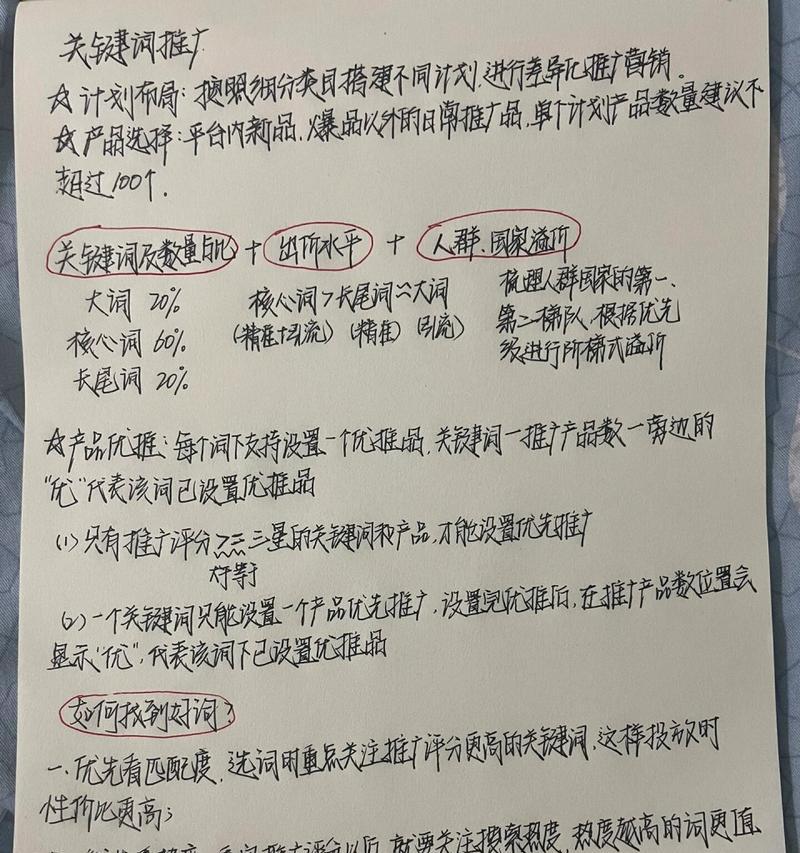 关键词推广
☆ 计划布局：按照细分类目搭建不同计划，进行差异化推广营销。
☆ 产品选择：平台内新品，爆品以外的日常推广品，单个计划产品数量建议不
超过100个.
关键词及数量占比 + 出价水平 + 人群、国家溢价
大词 20% 核心词>长尾词≈大词 梳理人群国家的第一、
核心词 60% (精准+引流) (精准) (引流) 第二梯队，根据优先
长尾词 20% 级进行阶梯式溢价
☆ 产品优推：每个词下支持设置一个优推品，关键词一推广产品数一旁边的
"优"代表该词已设置优推品
(1)只有推广评分>=三星的关键词和产品，才能设置优先推广
大于等于
(2)一个关键词只能设置一个产品优先推广，设置完优推后，在推广产品数位置会
显示"优"，代表该词下已设置优推品
如何找到好词？
一、优先看匹配度，选词时重点关注推广评分更高的关键词，这样投放时
性价比更高；
推广评分以后，就要关注搜索热度，热度越高的词更值